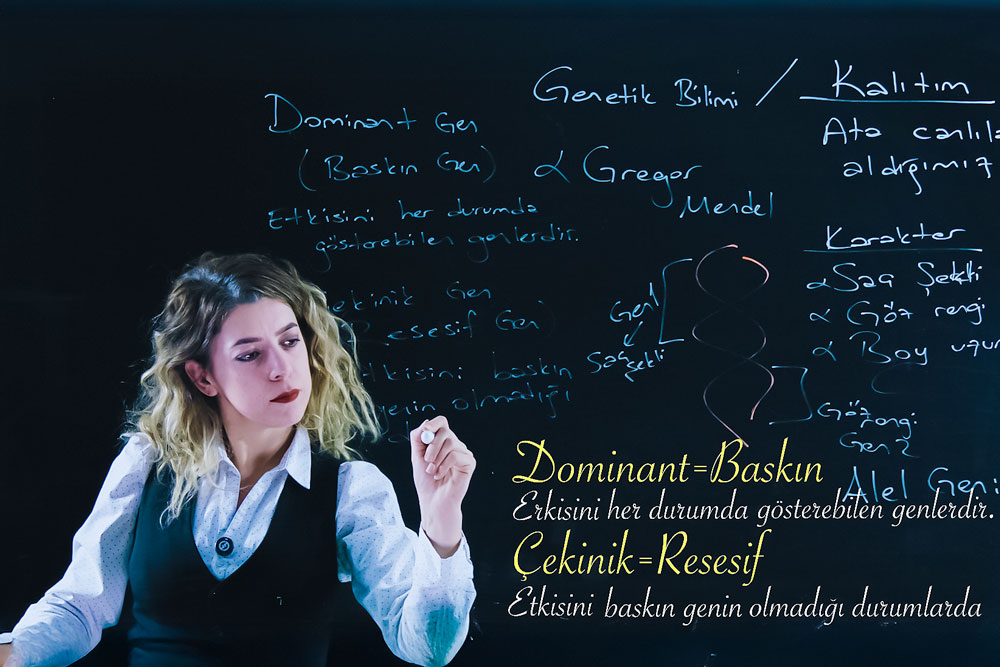 Genetik Bilimi / Kalıtım
Dominant Gen
(Baskın Gen)
Etkisini her durumda
gösterebilen genlerdir.
ekinik Gen
Resesif Gen)
tkisini baskın
genin olmadığı
α Gregor
Mendel
Gen 1
Saç
şekli
Ata canlıla
aldığımız
Karakter
α Saç Şekli
α Göz rengi
α Boy uzun
Göz rengi
Gen 2
Alel Gen:
Dominant=Baskın
Erkisini her durumda gösterebilen genlerdir.
Çekinik=Resesif
Etkisini baskın genin olmadığı durumlarda